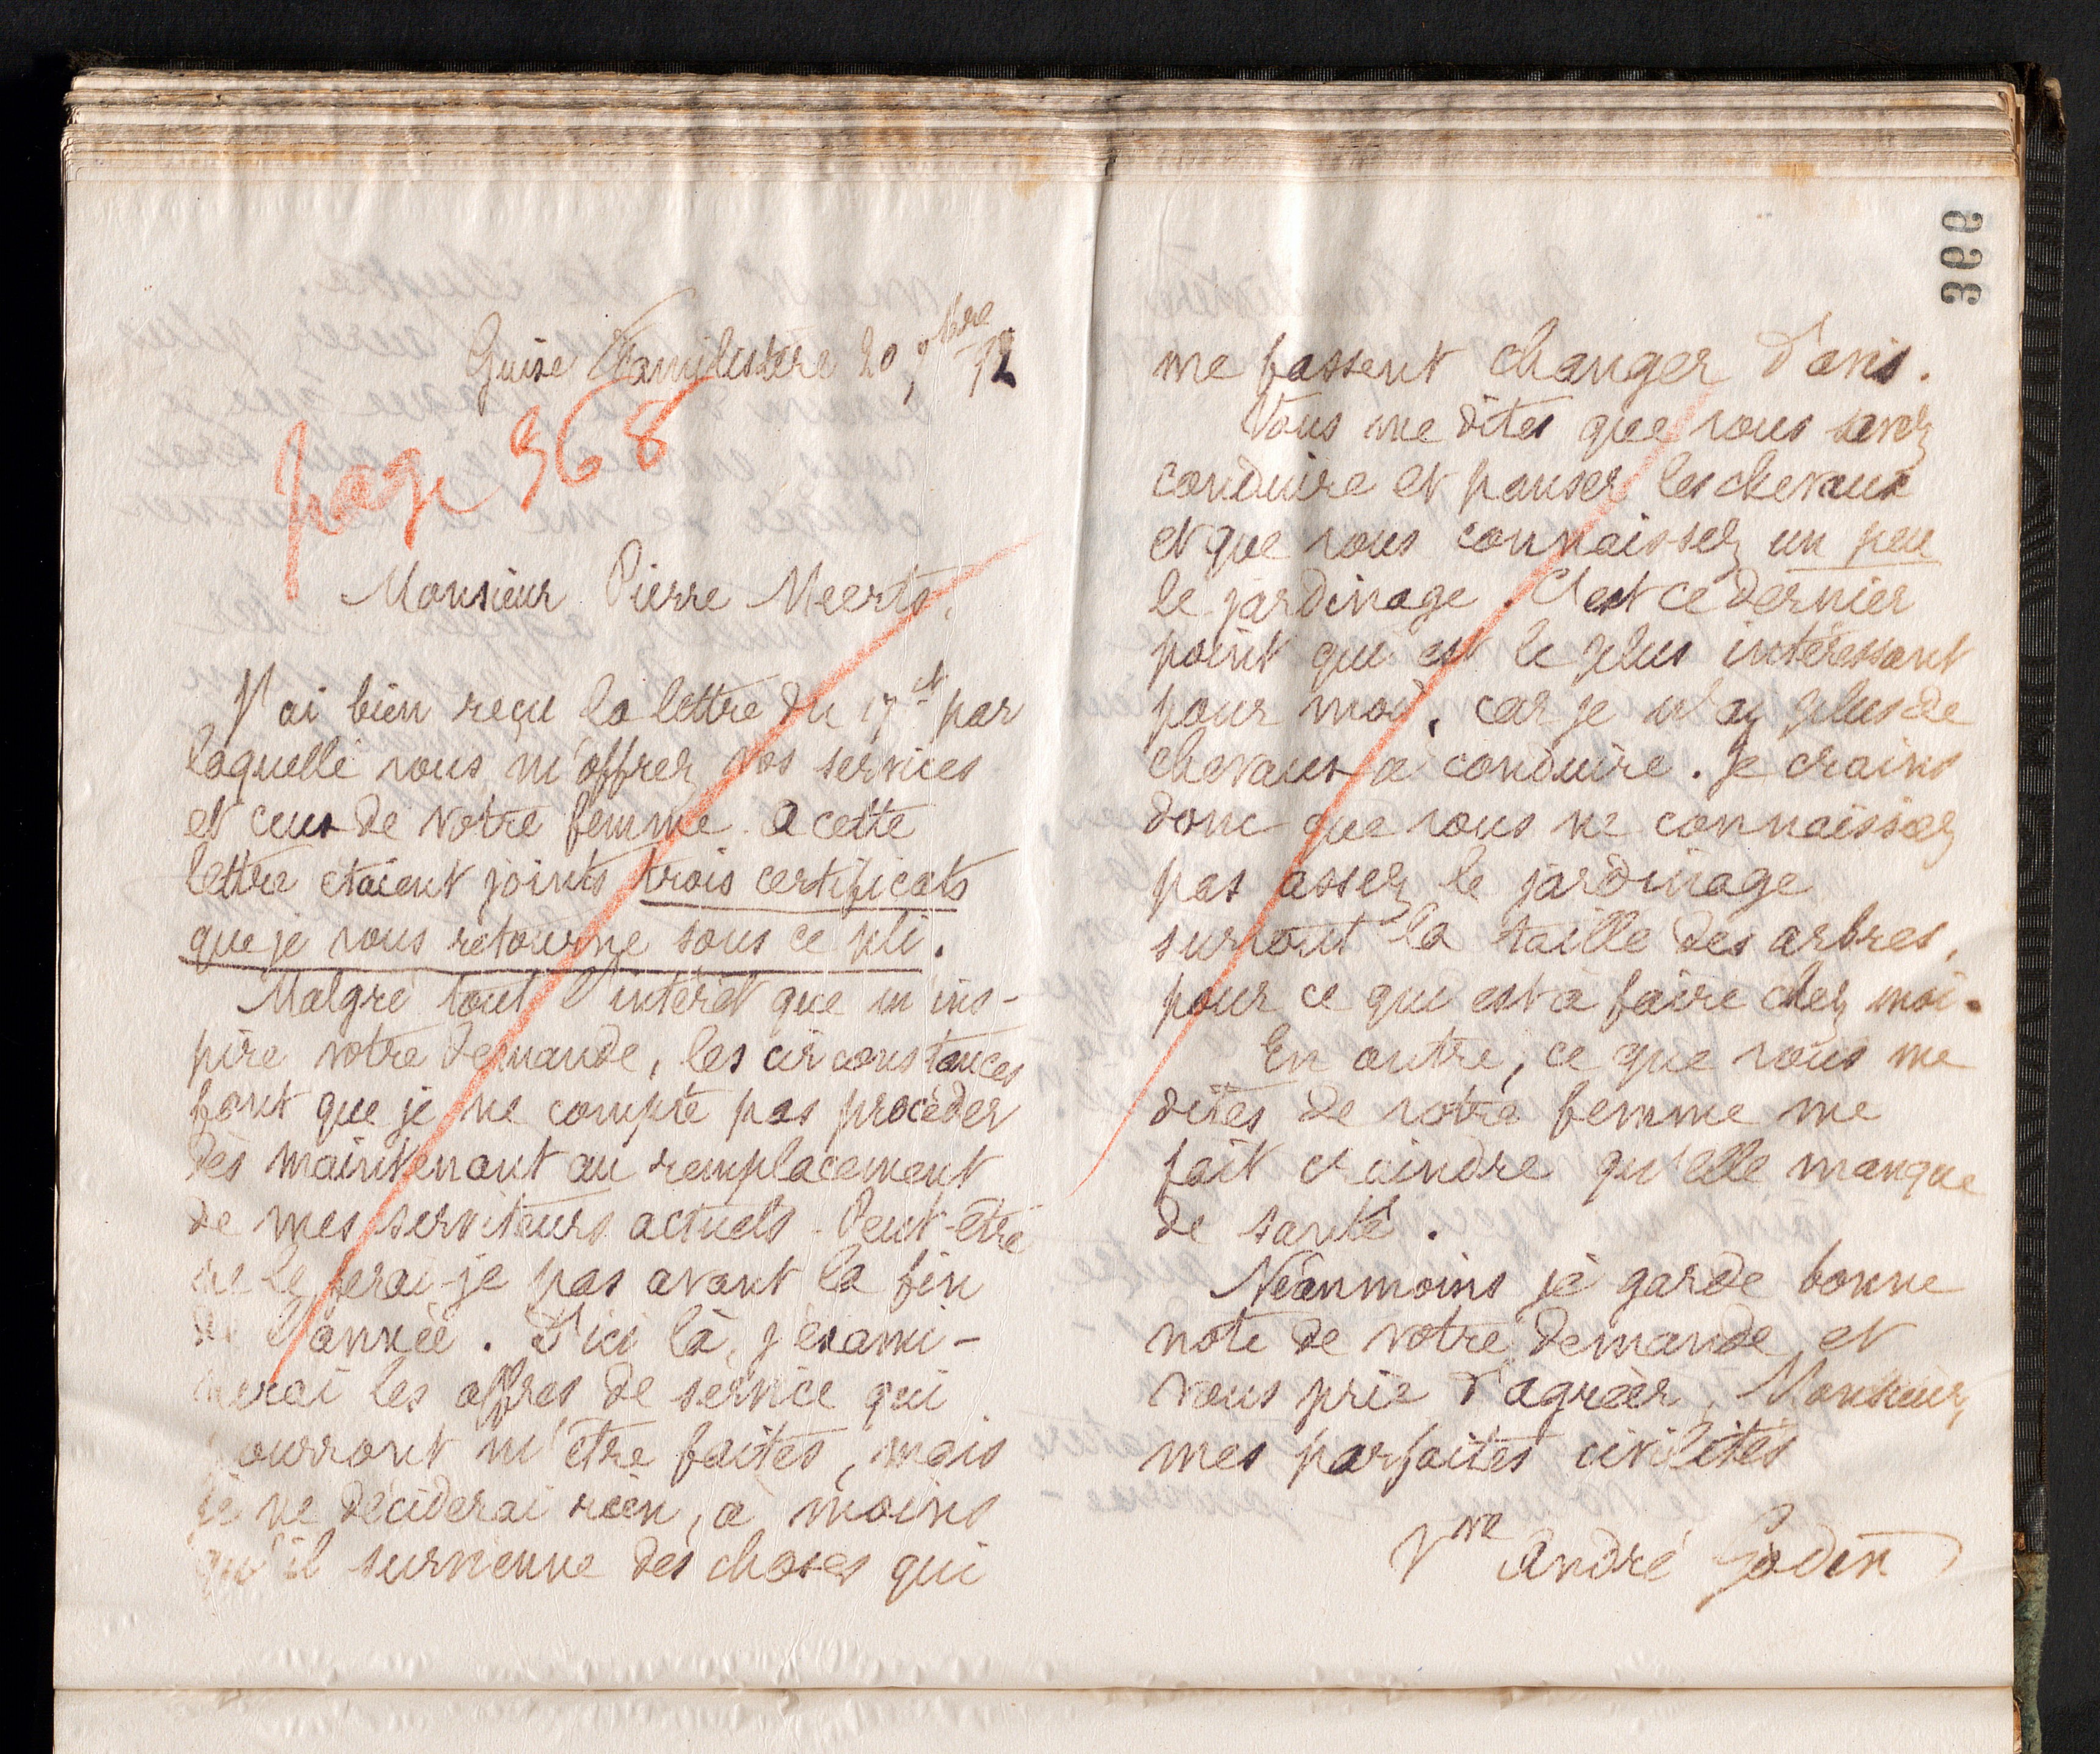 Guise Familistère 20 9bre 92
page 368
Monsieur Pierre Meerts,
J'ai bien reçu la lettre du 17 ct par
laquelle vous m'offrez vos services
et ceux de votre femme. A cette
lettre étaient joints trois certificats
que je vous retourne sous ce pli.
Malgré tout l'intérêt que m'ins-
pire votre demande, les circonstances
font que je ne compte pas procéder
dès maintenant au remplacement
de mes serviteurs actuels. Peut-être
ne le ferai-je pas avant la fin
de l'année. D'ici là, j'exami-
nerai les offres de service qui
pourront m'être faites, mais
je ne déciderai rien, à moins
qu'il survienne des choses qui
366
me fassent changer d'avis.
Vous me dites que vous savez
conduire et panser les chevaux
et que vous connaissez un peu
le jardinage. C'est ce dernier
point qui est le plus intéressant
pour moi, car je n'ay plus de
chevaux à conduire. Je crains
donc que vous ne connaissiez
pas assez le jardinage
surtout la taille des arbres,
pour ce qui est à faire chez moi.
En outre, ce que vous me
dites de votre femme me
fait craindre qu'elle manque
de santé.
Néanmoins je garde bonne
note de votre demande et
vous prie d'agréer, Monsieur,
mes parfaites civilités
Vve André Godin